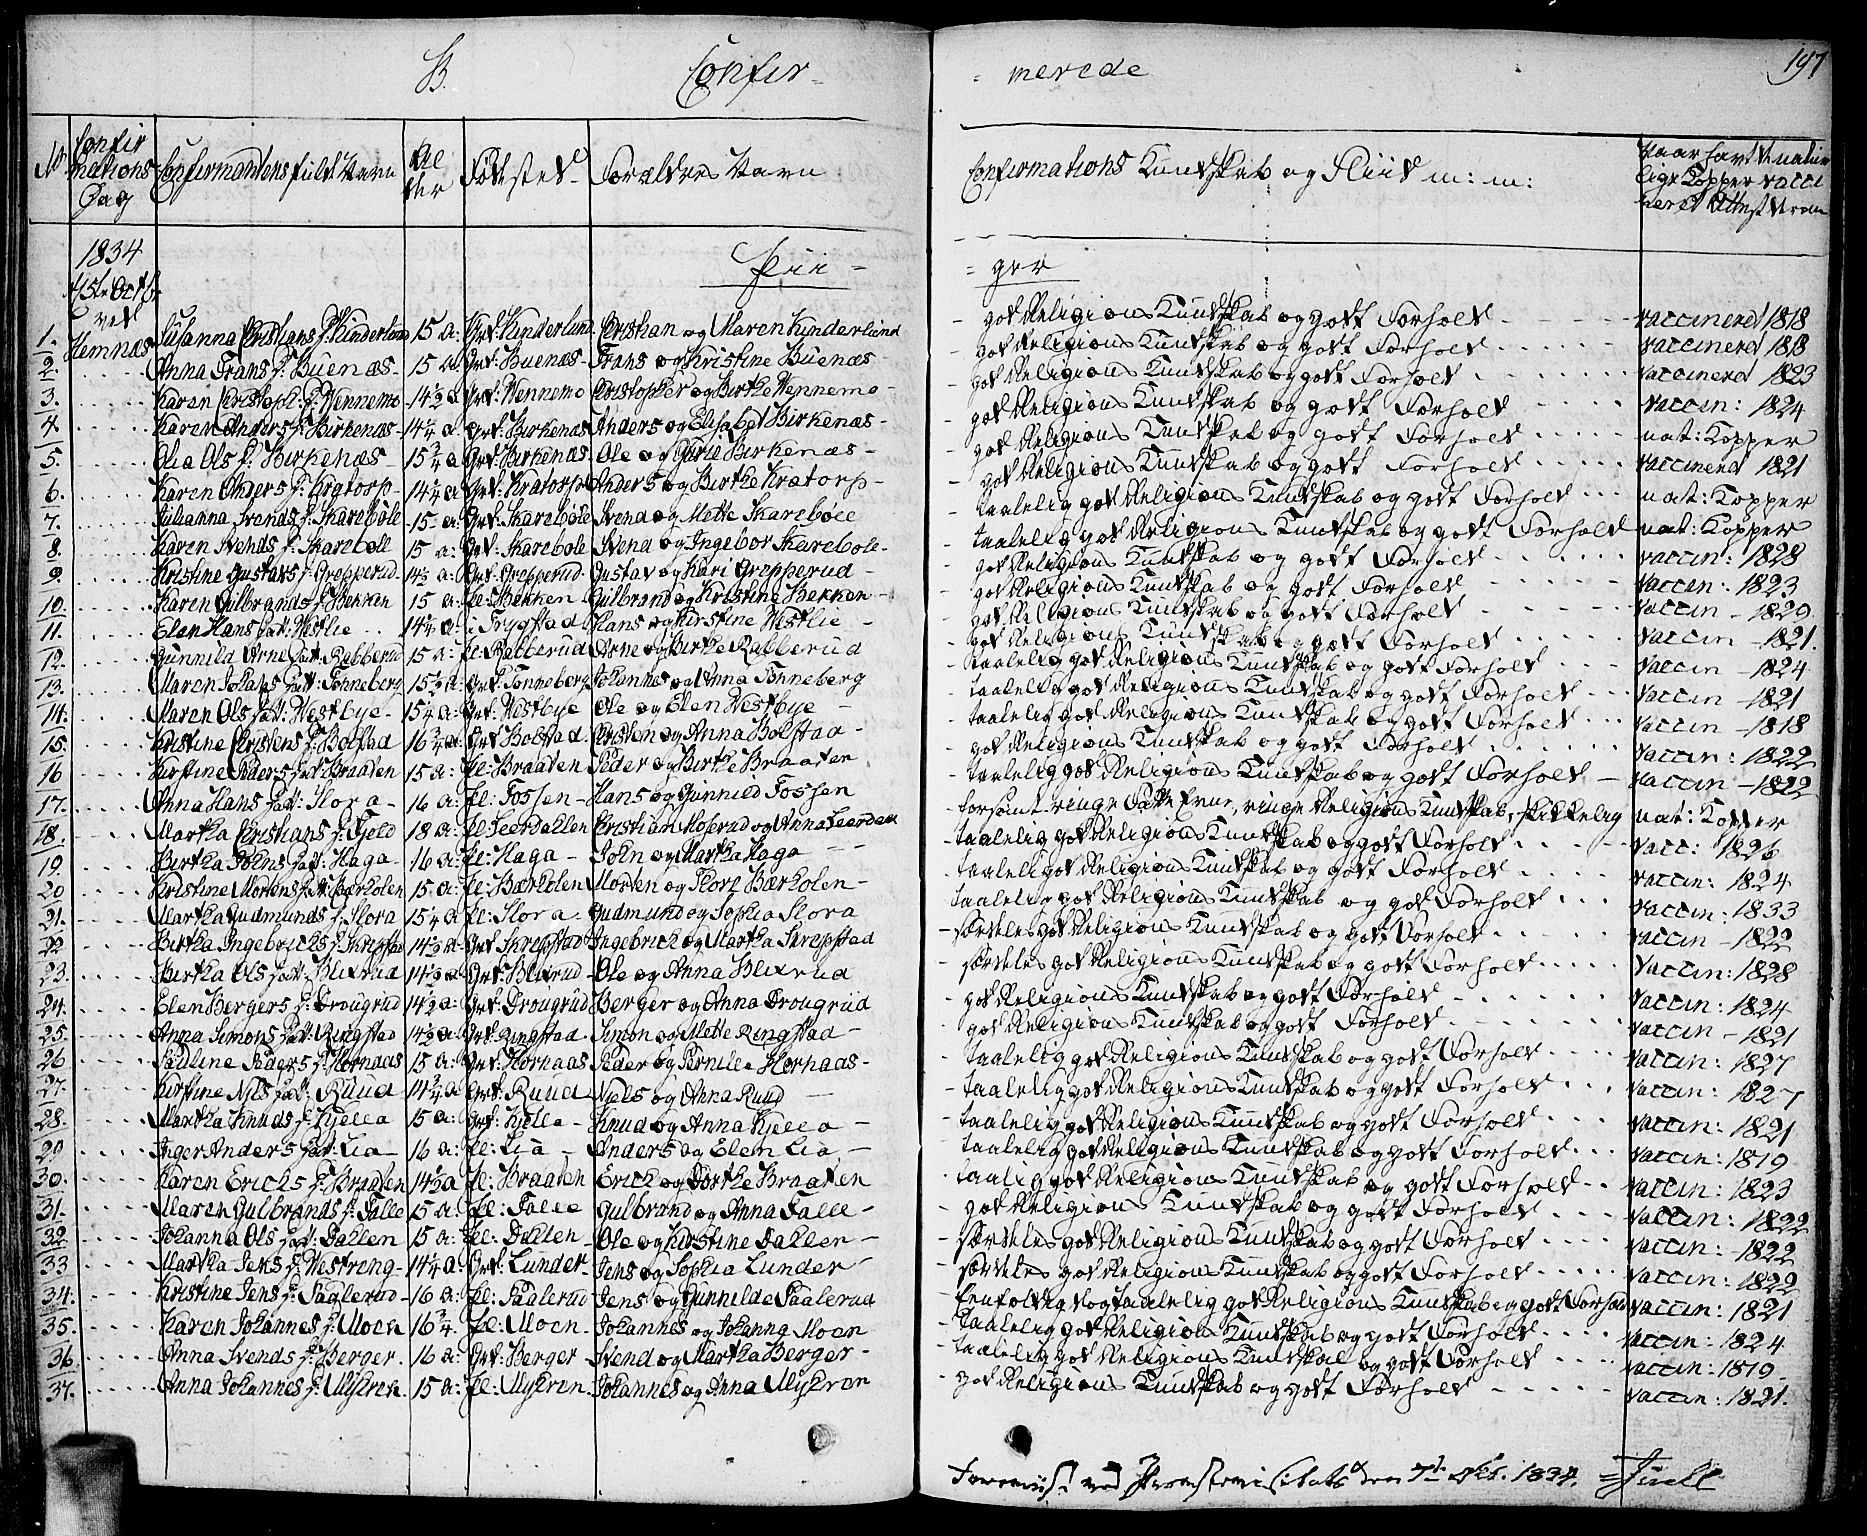 B. Confir- = merede 197
No
Confirmations Dag
Confirmantens fulde Navn
Alder
Födested
Forældres Navn
Confirmations Kundskab og Fliid m: m:
Naar havt Naturlige Kopper vaccineret Attest derom
1834
15de Octbr
ved
Hemnæs
Pii = = ger
1. Susanna Christians D: Kinderlund 15 a: Grd: Kinderlund Christian og Maren Kinderlund - god Religions Kundskab og godt Forhold vaccineret 1818
2. Anna Frans D: Buenæs 15 a: Grd: Buenæs Frans og Kristine Buenæs - god Religions Kundskab og godt Forhold vaccineret 1818
3. Karen Christoph: D: Wennemo 14½ a Grd: Wennemo Christopher og Birthe Wennemo - god Religions Kundskab og godt Forhold vaccineret 1823
4. Karen Anders D: Birkenæs 14¼ a Grd: Birkenæs Anders og Elisabet Birkenæs - god Religions Kundskab og godt Forhold vaccin: 1824
5. Olia Ols D: Birkenæs 15¾ a Grd: Birkenæs Ole og Gurie Birkenæs - god Religions Kundskab og godt Forhold nat: Kopper
6. Karen Anders D: Kratorp 14¼ a: Grd: Kratorp Anders og Birthe Kratorp - god Religions Kundskab og godt Forhold vaccineret 1821
7. Julianna Svends D: Skareböle 15 a: Grd: Skareböle Svend og Mette Skareböle - taalelig god Religions Kundskab og godt Forhold nat: Kopper
8. Karen Svends D: Skareböle 15 a: Grd: Skareböle Svend og Ingebor Skareböle - taalelig god Religions Kundskab og godt Forhold nat: Kopper
9. Kristine Gustavs D: Grepperud 14½ a: Grd: Grepperud Gustav og Kari Grepperud - god Religions Kundskab og godt Forhold vaccin: 1828
10. Karen Gulbrands D: Bekken 15 a: Pl: Bekken Gulbrand og Kristine Bekken - god Religions Kundskab og godt Forhold vaccin: 1823
11. Elen Hans Dat: Westlie 14¼ a: i Trygstad Hans og Kirstine Westlie - god Religions Kundskab og godt Forhold vaccin - 1829
12. Gunnild Arne Dat: Rabberud 15 a: Pl: Rabberud Arne og Birthe Rabberud - god Religions Kundskab og godt Forhold vaccin - 1821.
13. Maren Johans Dat: Tönneberg 15½ a: Grd: Tonneberg Johannes og Anna Tonneberg - taalelig god Religions Kundskab og godt Forhold vaccin - 1824
14. Maren Ols Dat: Westbye 15¼ a: Grd: Westbye Ole og Elen Westbye - taalelig god Religions Kundskab og godt Forhold vaccin - 1821
15. Kristine Christens D: Bolstad 16¾ a: Grd Bolstad Christen og Anna Bolstad - taalelig god Religions Kundskab og godt Forhold vaccin - 1818
16 Kirstine Peders Dat: Braaten 15 a: Pl: Braaten Peder og Birthe Braaten - god Religions Kundskab og godt Forhold vaccin: 1822
17. Anna Hans Dat: Flora 16 a: Pl: Fossen Hans og Gunnild Fossen - taalelig god Religions Kundskab og godt Forhold vaccin - 1822
18. Martha Christians D: Fjeld 18 a: Pl: Leerdallen Christian Moserud og Anna Leerdall - forsömt ringe Fatte Evne, ringe Religions Kundskab, skikkelig nat: Kopper
19. Birtha Johns Dat: Haga 16 a: Pl: Haga John og Martha Haga - taalelig god Religions Kundskab og godt Forhold vacc: 1826
20 Kristine Mortens Dat: Bærholen 15 a: Pl: Bærholen Morten og Thore Bærholen - taalelig god Religions Kundskab og godt Forhold vaccin: 1824
21. Martha Gudmunds D: Flora 15¼ a Pl: Flora Gudmund og Sophia Flora - taalelig god Religions Kundskab og god Forhold vaccin: 1833
22 Birtha Ingebrichs D: Skrepstad 14½ a: Grd: Skrepstad Ingebrich og Martha Skrepstad - særdeles god Religions Kundskab og godt Forhold vaccin - 1822
23. Birtha Ols Dat: Blixrud 14½ a Grd: Blixrud Ole og Anna Blixrud - særdeles god Religions Kundskab og godt Forhold vaccin: 1828
24. Elen Bergers D: Drougrud 14½ a: Grd: Drougrud Berger og Anna Drougrud - god Religions Kundskab og godt Forhold vaccin: 1824
25. Anna Simons Dat: Ringstad 14½ a: Grd: Ringstad Simon og Mette Ringstad - god Religions Kundskab og godt Forhold vaccin - 1821
26 Pauline Peders D: Hornaas 15 a: Grd: Hornaas Peder og Pernille Hornaas - taalelig god Religions Kundskab og godt Forhold vaccin: 1827
27. Kirstine Niels Dat: Ruud 14¼ a Grd: Ruud Niels og Anna Ruud - taalelig god Religions Kundskab og godt Forhold vaccin: 1827
28. Martha Knuds D: Kjella 15 a: Grd: Kjella Knud og Anna Kjella - taalelig god Religions Kundskab og godt Forhold vaccin: 1821
29 Inger Anders Dat: Lia 16 a: Pl: Lia Anders og Elen Lia - taalelig god Religions Kundskab og godt Forhold vaccin: 1819
30. Karen Erichs D: Braaten 14½ a Pl: Braaten Erich og Dorthe Braaten - taalig god Religions Kundskab og godt Forhold vaccin: 1823
31. Maren Gulbrands D: Falle 15 a. Pl: Falle Gulbrand og Anna Falle - god Religions Kundskab og godt Forhold vaccin: 1822
32 Johanna Ols Dat: Dahlen 15 a: Pl: Dahlen Ole og Kirstine Dahlen - særdeles god Religions Kundskab og godt Forhold vaccin: 1822
33 Martha Jens D: Westreng 14¼ a. Grd: Lunder Jens og Sophia Lunder - særdeles god Religions Kundskab og godt Forhold vaccin: 1822
34. Kristine Jens D: Paalerud 16 a. Pl: Paalerud Jens og Gunnilde Paalerud - Eenfoldig dog taalelig god Religions Kundskab og godt Forhold vaccin: 1821
35. Karen Johannes D: Moen 16¾ Pl: Moen Johannes og Johanna Moen - taalelig god Religions Kundskab og godt Forhold vaccin: 1824
36 Anna Svends D: Berger. 16 a: Grd: Berger Svend og Martha Berger - taalelig god Religions Kundskab og godt Forhold vaccin: 1819
37. Anna Johannes D: Myhren 15 a: Pl: Myhren Johannes og Anna Myhren - god Religions Kundskab og godt Forhold vaccin: 1821.
Foreviist ved Provstevisitats den 7de Oct. 1834. Juell